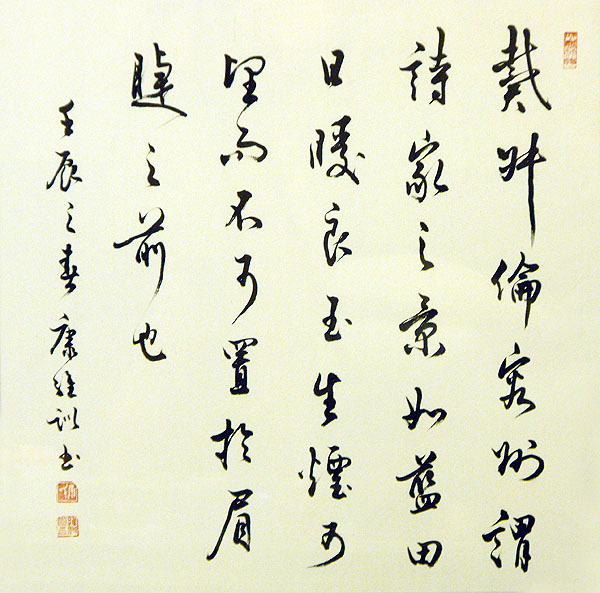 戴叔倫容州謂
詩家之景如藍田
日暖良玉生煙可
望而不可置於眉
睫之前也
壬辰之春 康維訓書